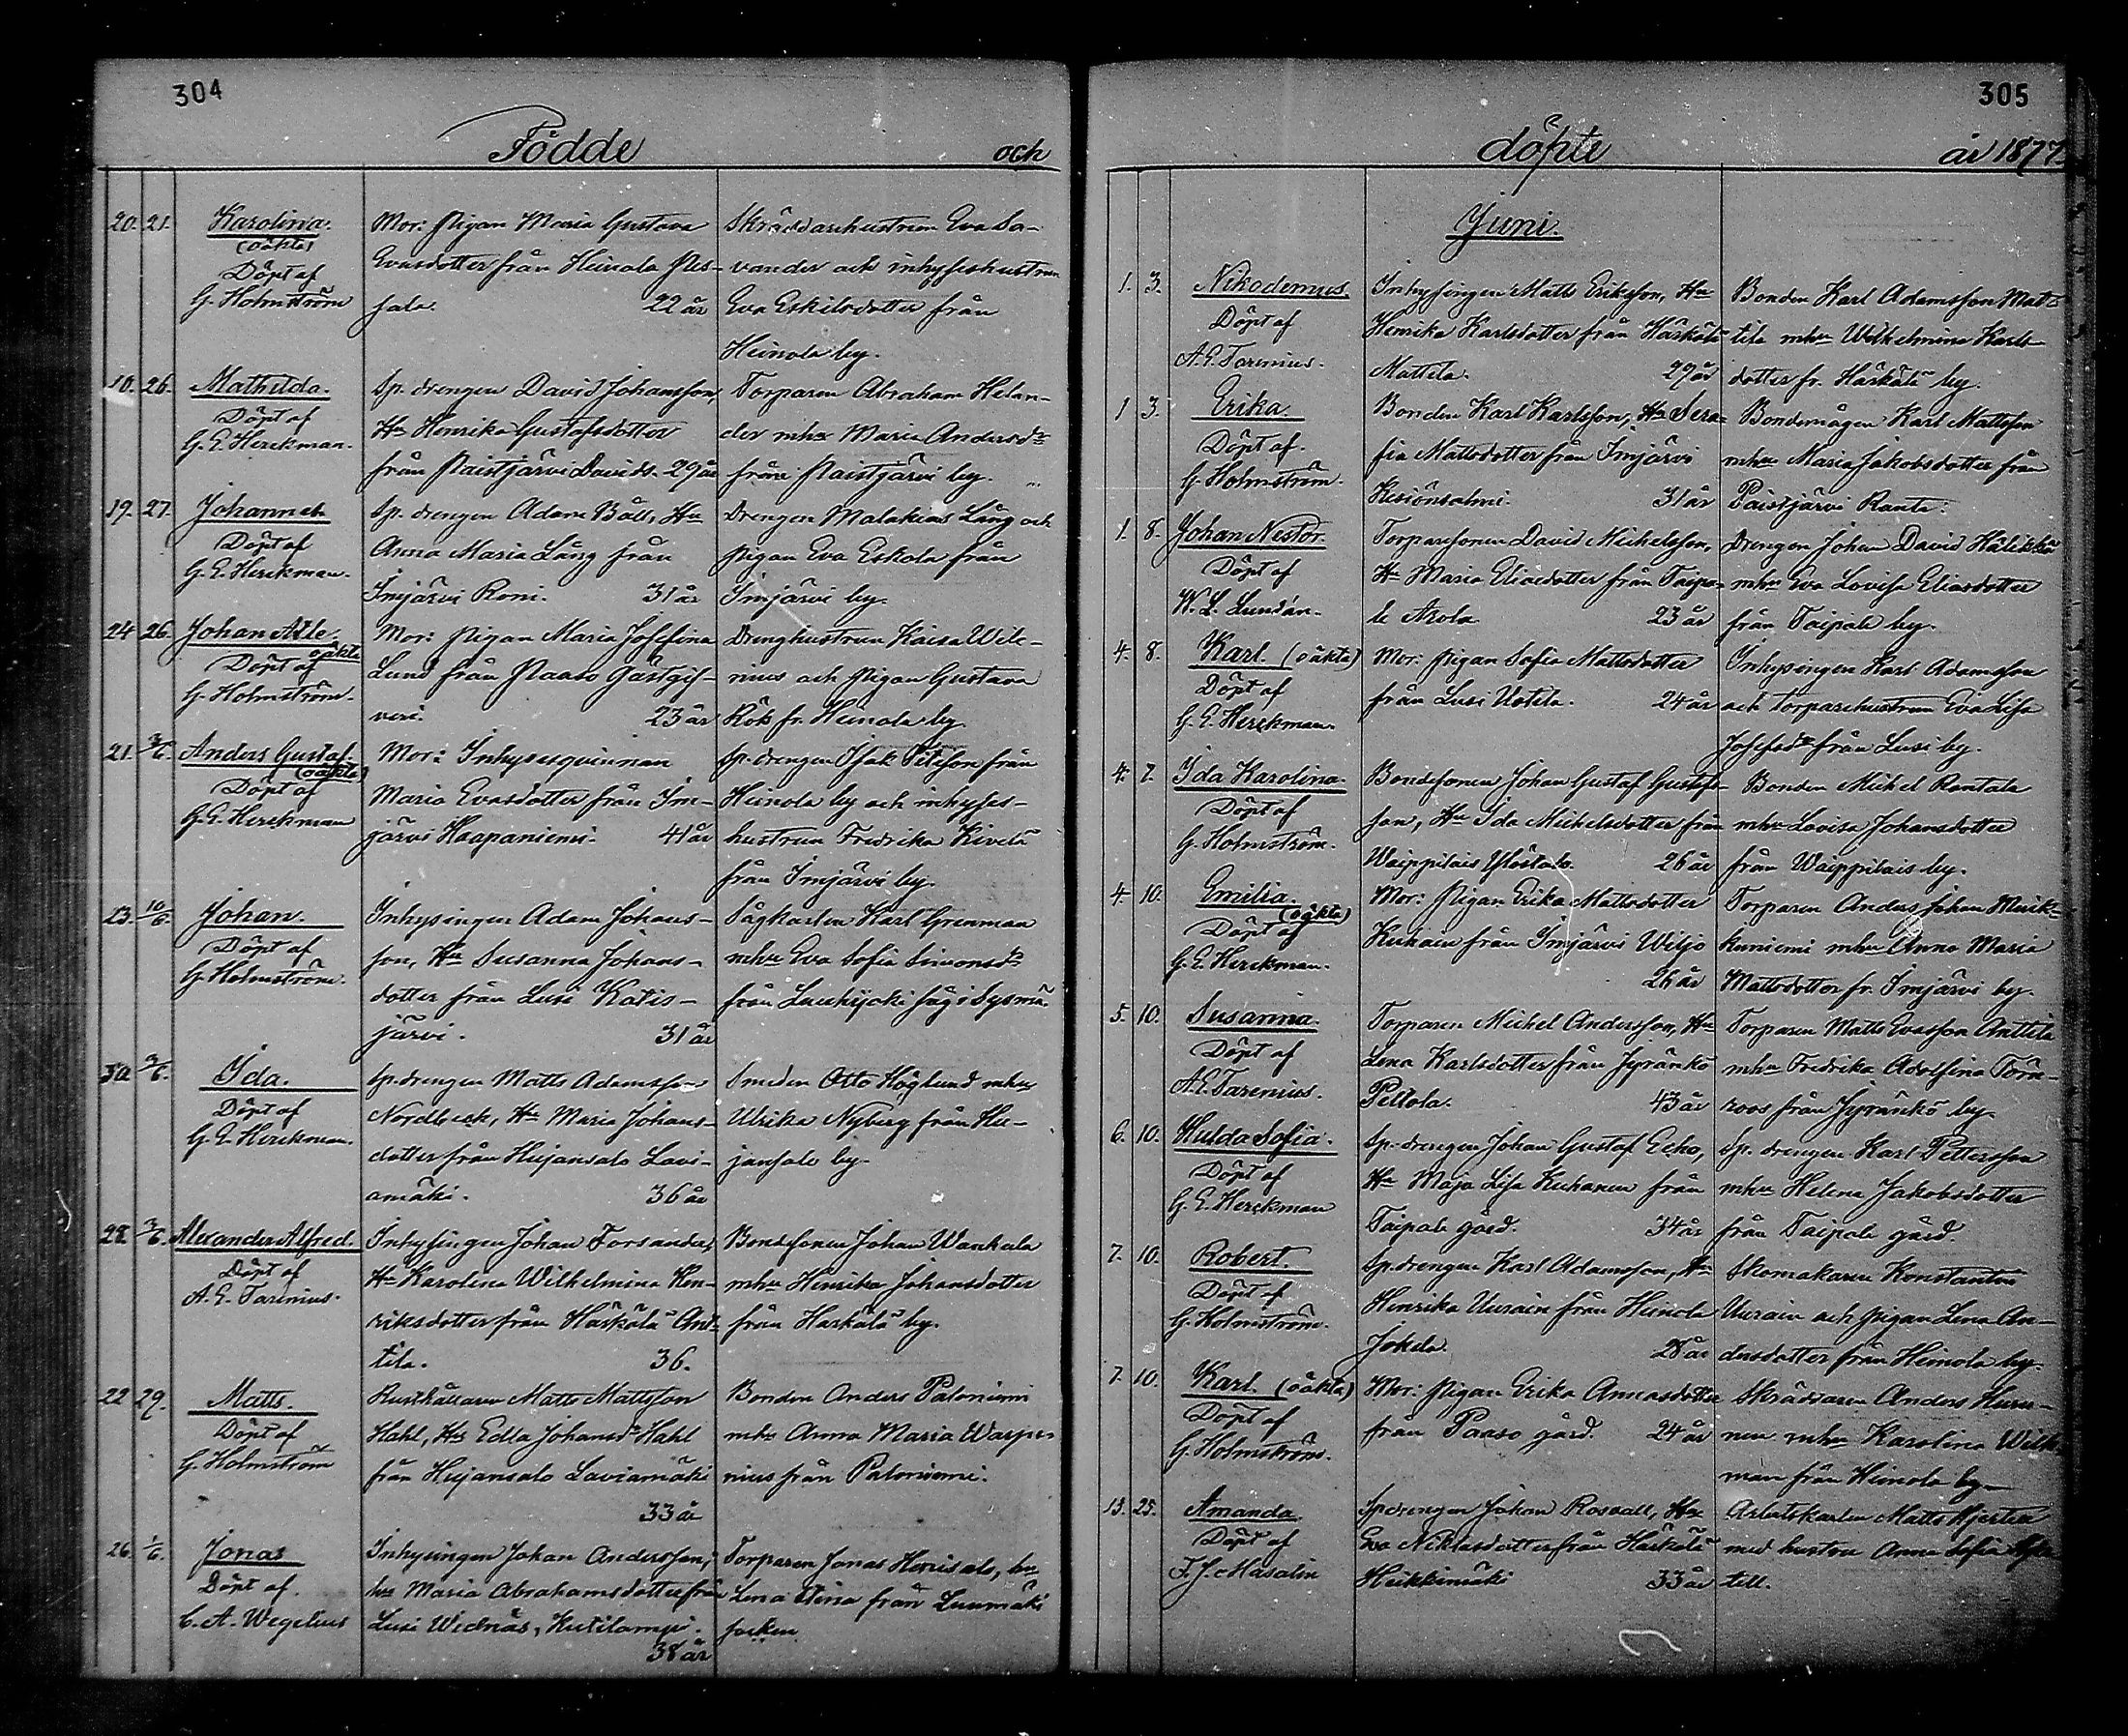 304
Födde och
20. 21. Karolina.
(oäkta)
Döpt af
G. Holmström
Mor: Pigan Maria Gustava
Evasdotter från Heinola
sala. 22 år
Skräddarehustrun Eva
vander och inhyseshustrun
Eva Eskilsdotter från
Heinola by.
10. 26. Mathilda.
Döpt af
G. E. Herckman.
Sp. drengen David Johansson,
Hu Henrika Gustafsdotter
från Paistjärvi Davids. 29 år
Torparen Abraham Helan-
der mhu Maria Andersdr
från Paistjärvi by.
19. 27. Johannes
Döpt af
G. E. Herckman.
Sp. drengen Adam Båll, Hu
Anna Maria Lång från
Imjärvi Roni. 31 år
Drengen Malakias Lång och
pigan Eva Eskola från
Imjärvi by.
24 26. Johan Atle
oäkta
Döpt af
G. Holmström.
Mor: Pigan Maria Josefina
Lund från Paaso Gästgif-
veri. 23 år
Drenghustrun Kaisa Wile-
nius och pigan Gustava
Rök fr. Heinola by.
21. 3/6. Anders Gustaf.
(oäkta)
Döpt af
G. E. Herckman
Mor: Inhysesqvinnan
Maria Evasdotter från Im-
järvi Haapaniemi. 41 år
Sp. drengen Isak from från
Heinola by och inhyses-
hustrun Fredrika Kivelä
från Imjärvi by.
23. 10/6. Johan.
Döpt af
G. Holmström.
Inhysingen Adam Johans-
son, Hu Susanna Johans-
dotter från Lusi Katis-
järvi. 31 år
Sågkarlen Karl Grenman
mhu Eva Sofia Simonsdr
från såg i Sysmä.
30 3/6. Ida.
Döpt af
G. E. Herckman.
Sp. drengen Matts Adamsson
Nordbeck, Hu Maria Johans-
dotter från Hujansalo Lavi-
amäki. 36 år
Smeden Otto Höglund mhu
Ulrika Nyberg från Hu-
jansalo by.
28. 3/6. Alexander Alfred.
Döpt af
A. E. Tarenius.
Inhysingen Johan Forsander,
Hu Karolina Wilhelmina Hen-
riksdotter från Härkälä Ant-
tila. 36.
Bondesonen Johan Wankala
mhu Henrika Johansdotter
från Härkälä by.
22 29. Matts.
Döpt af
G. Holmström
Rusthållaren Matts Mattsson
Hahl, Hu Edla Johansdr Hahl
från Hujansalo Laviamäki
33 år
Bonden Anders Paloniemi
mhu Anna Maria
nius från Paloniemi.
26. 1/6. Jonas
Döpt af
C. A. Wegelius
Inhysingen Johan Andersson,
hu Maria Abrahamsdotter från
Lusi Wednäs, Kutilampi.
38 år
Torparen Jonas hu
Lena Stina från Luumäki
socken
305
döpte år 1877.
Juni.
1. 3. Nikodemus.
Döpt af
A. E. Tarenius.
Inhysingen Matts Eriksson, Hu
Henrika Karlsdotter från Härkälä
Mattila. 29 år
Bonden Karl Adamsson Mat-
tila mhu Wilhelmina Karls-
dotter fr. Härkälä by.
1 3. Erika.
Döpt af
G. Holmström.
Bonden Karl Karlsson, Hu Sera-
fia Mattsdotter från Imjärvi
31 år
Bondemågen Karl Mattsson
mhu Maria Jakobsdotter från
Paistjärvi Ranta.
1. 8. Johan Nestor.
Döpt af
W. L. Lundán.
Torparesonen David Michelsson,
Hu Maria Eliaedotter från Taipa-
le Arola 23 år
Drengen Johan David Hälikkä
mhu Eva Lovisa Eliasdotter
från Taipale by.
4. 8. Karl. (oäkta)
Döpt af
G. E. Herckman.
Mor: Pigan Sofia Mattsdotter
från Lusi Uotila. 24 år
Inhysingen Karl Adamsson
och torparehustrun Eva Lisa
Josefsdr från Lusi by.
4. 7. Ida Karolina.
Döpt af
G. Holmström.
Bondesonen Johan Gustaf Gustafs-
son, Hu Ida Michelsdotter från
Waippilais Ylöstalo. 26 år
Bonden Michel Rantala
mhu Lovisa Johansdotter
från Waippilais by.
4. 10. Emilia.
(oäkta)
Döpt af
G. E. Herckman.
Mor: Pigan Erika Mattsdotter
från Imjärvi Wiljo
26 år
Torparen Anders Johan
kuniemi mhu Anna Maria
Mattsdotter fr. Imjärvi by.
5. 10. Susanna.
Döpt af
A. E. Tarenius.
Torparen Michel Andersson, Hu
Lena Karlsdotter från Jyränkö
Peltola. 43 år
Torparen Matts Evasson Anttila
mhu Fredrika Adolfina Törn-
roos från Jyränkö by.
6. 10. Hulda Sofia.
Döpt af
G. E. Herckman
Sp. drengen Johan Gustaf Ecko,
Hu Maja Lisa Kuhanen från
Taipale gård. 34 år
Sp. drengen Karl Pettersson
mhu Helena Jakobsdotter
från Taipale gård.
7. 10. Robert.
Döpt af
G. Holmström.
Sp. drengen Karl Adamsson, Hu
Henrika Uurain från Heinola
Jokela. 28 år
Skomakaren Konstantin
Uurain och pigan Lena An-
dersdotter från Heinola by.
7. 10. Karl. (oäkta)
Döpt af
G. Holmström.
Mor: Pigan Erika Annasdotter
från Paaso gård. 24 år
Skräddaren Anders
nen mhu Karolina Wilk-
man från Heinola by.
13. 25. Amanda.
Döpt af
F. J. Masalin
Sp drengen Johan Rosvall, Hu
Eva Niklasdotter från Härkälä
Heikkimäki 33 år
Arbetskarlen Matts Hjerten
med hustru Anna Sofia
till.